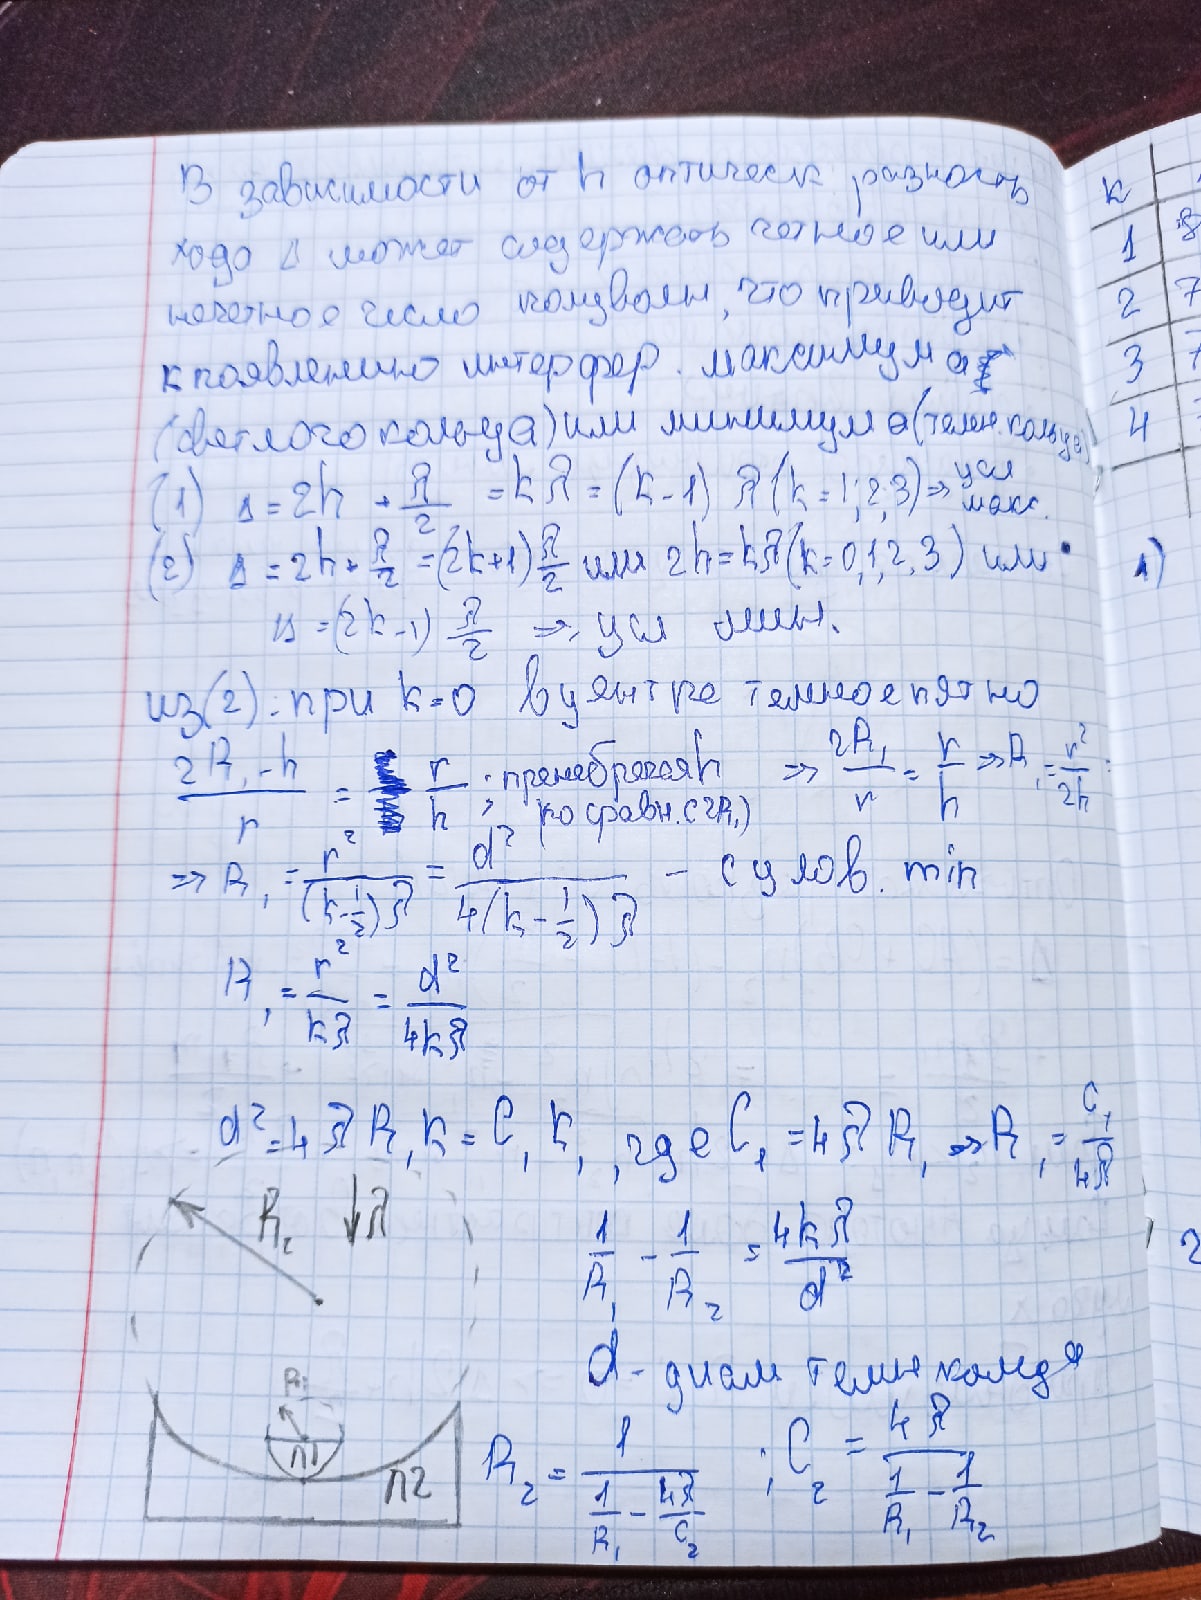 В зависимости от h оптическ разность
хода Δ может содержать четное или
нечетное число полуволн, что приводит
к появлению интерфер. максимума
(светлого кольца) или минимума (темн. кольца)
(1) Δ = 2h + λ/2 = kλ = (k-1) λ (k = 1,2,3) => усл макс.
(2) Δ = 2h + λ/2 = (2k+1) λ/2 или 2h = kλ (k = 0,1,2,3) или
Δ = (2k-1) λ/2 => усл мин.
из (2): при k=0 в центре темное пятно
(2R₁-h)/r = r/h ; пренебрегая h по сравн. с 2R₁) => 2R₁/r = r/h => R₁ = r²/2h
=> R₁ = r²/((k-1/2)λ) = d²/(4(k-1/2)λ) - с услов. min
R₁ = r²/kλ = d²/4kλ
d² = 4λR₁k = C₁k, где C₁ = 4λR₁ => R₁ = C₁/4λ
R₂ ↓λ
1/R₁ - 1/R₂ = 4kλ/d²
d - диам темн кольца
R₁
Л1
Л2
R₂ = 1/(1/R₁ - 4λ/C₂) ; C₂ = 4λ/(1/R₁ - 1/R₂)
k
1 8
2 7
3 7
4
1)
2